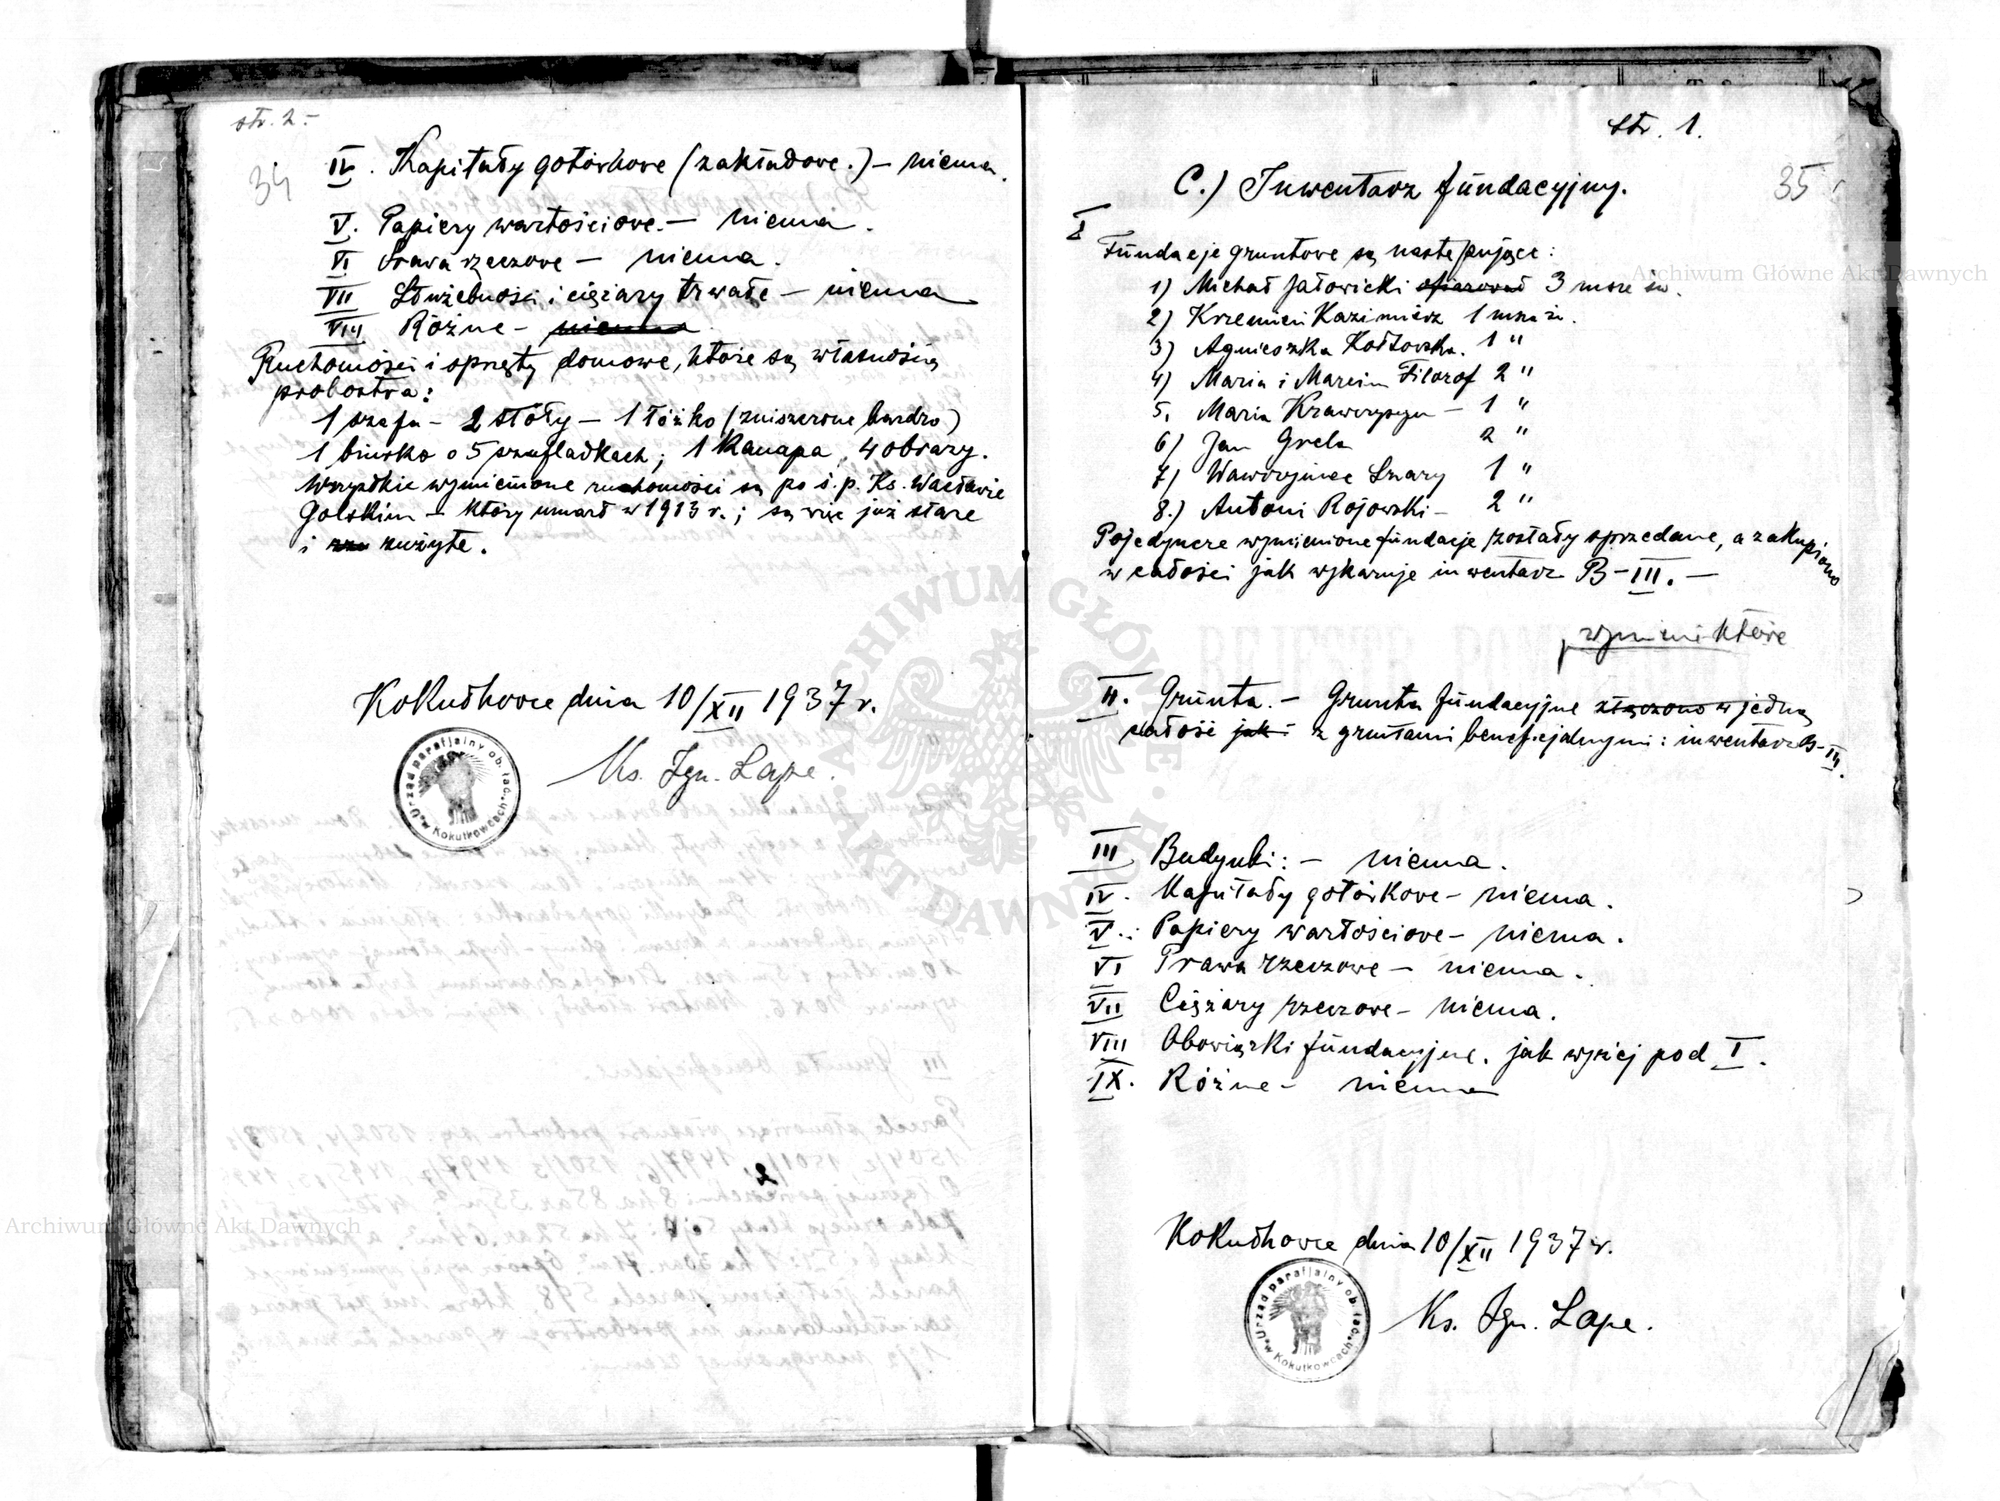 str. 2.-
34
IV. Kapitały gotówkowe (zakładowe.) – niema.
V. Papiery wartościowe. – niema.
VI Prawa rzeczowe – niema.
VII Służebności i ciężary trwałe – niema
VIII Różne – niema
Ruchomości i sprzęty domowe, które są własnością
probostwa:
1 szafa – 2 stóły – 1 łóżko (zniszczone bardzo)
1 biurko o 5 szufladkach; 1 Kanapa, 4 obrazy.
Wszystkie wymienione ruchomości są po ś.p. Ks. Wacławie
Golskim – który umarł w 1913 r.; są więc już stare
i zużyte.
Kokutkowce dnia 10/XII 1937 r.
Ks. Ign. Lape.
Urząd parafjalny ob. łac. w Kokutkowcach
str. 1.
35
C.) Inwentarz fundacyjny.
I
Fundacje gruntowe są następujące:
1) Michał Jałowicki ofiarował 3 morg
2) Krzemień Kazimierz 1
3) Agnieszka Kozłowska. 1 "
4) Maria i Marcin Filozof 2 "
5. Maria Krawczyszyn – 1 "
6) Jan Grela 2 "
7) Wawrzyniec Szary 1 "
8.) Antoni Rojowski – 2 "
Pojedyncze wymienione fundacje zostały sprzedane, a zakupiono
w całości jak wykazuje inwentarz B–III. –
II. Grunta. – Grunta fundacyjne złączono w jedną
całość jak z gruntami beneficjalnymi: inwentarz B–III.
III Budynki: – niema.
IV. Kapitały gotówkowe – niema.
V.: Papiery wartościowe – niema.
VI Prawa rzeczowe – niema.
VII Ciężary rzeczowe – niema.
VIII Obowiązki fundacyjne. jak wyżej pod I.
IX. Różne – niema
Kokutkowce dnia 10/XII 1937 r.
Ks. Ign. Lape.
Urząd parafjalny ob. łac. w Kokutkowcach
Archiwum Główne Akt Dawnych
Archiwum Główne Akt Dawnych
ARCHIWUM GŁÓWNE AKT DAWNYCH